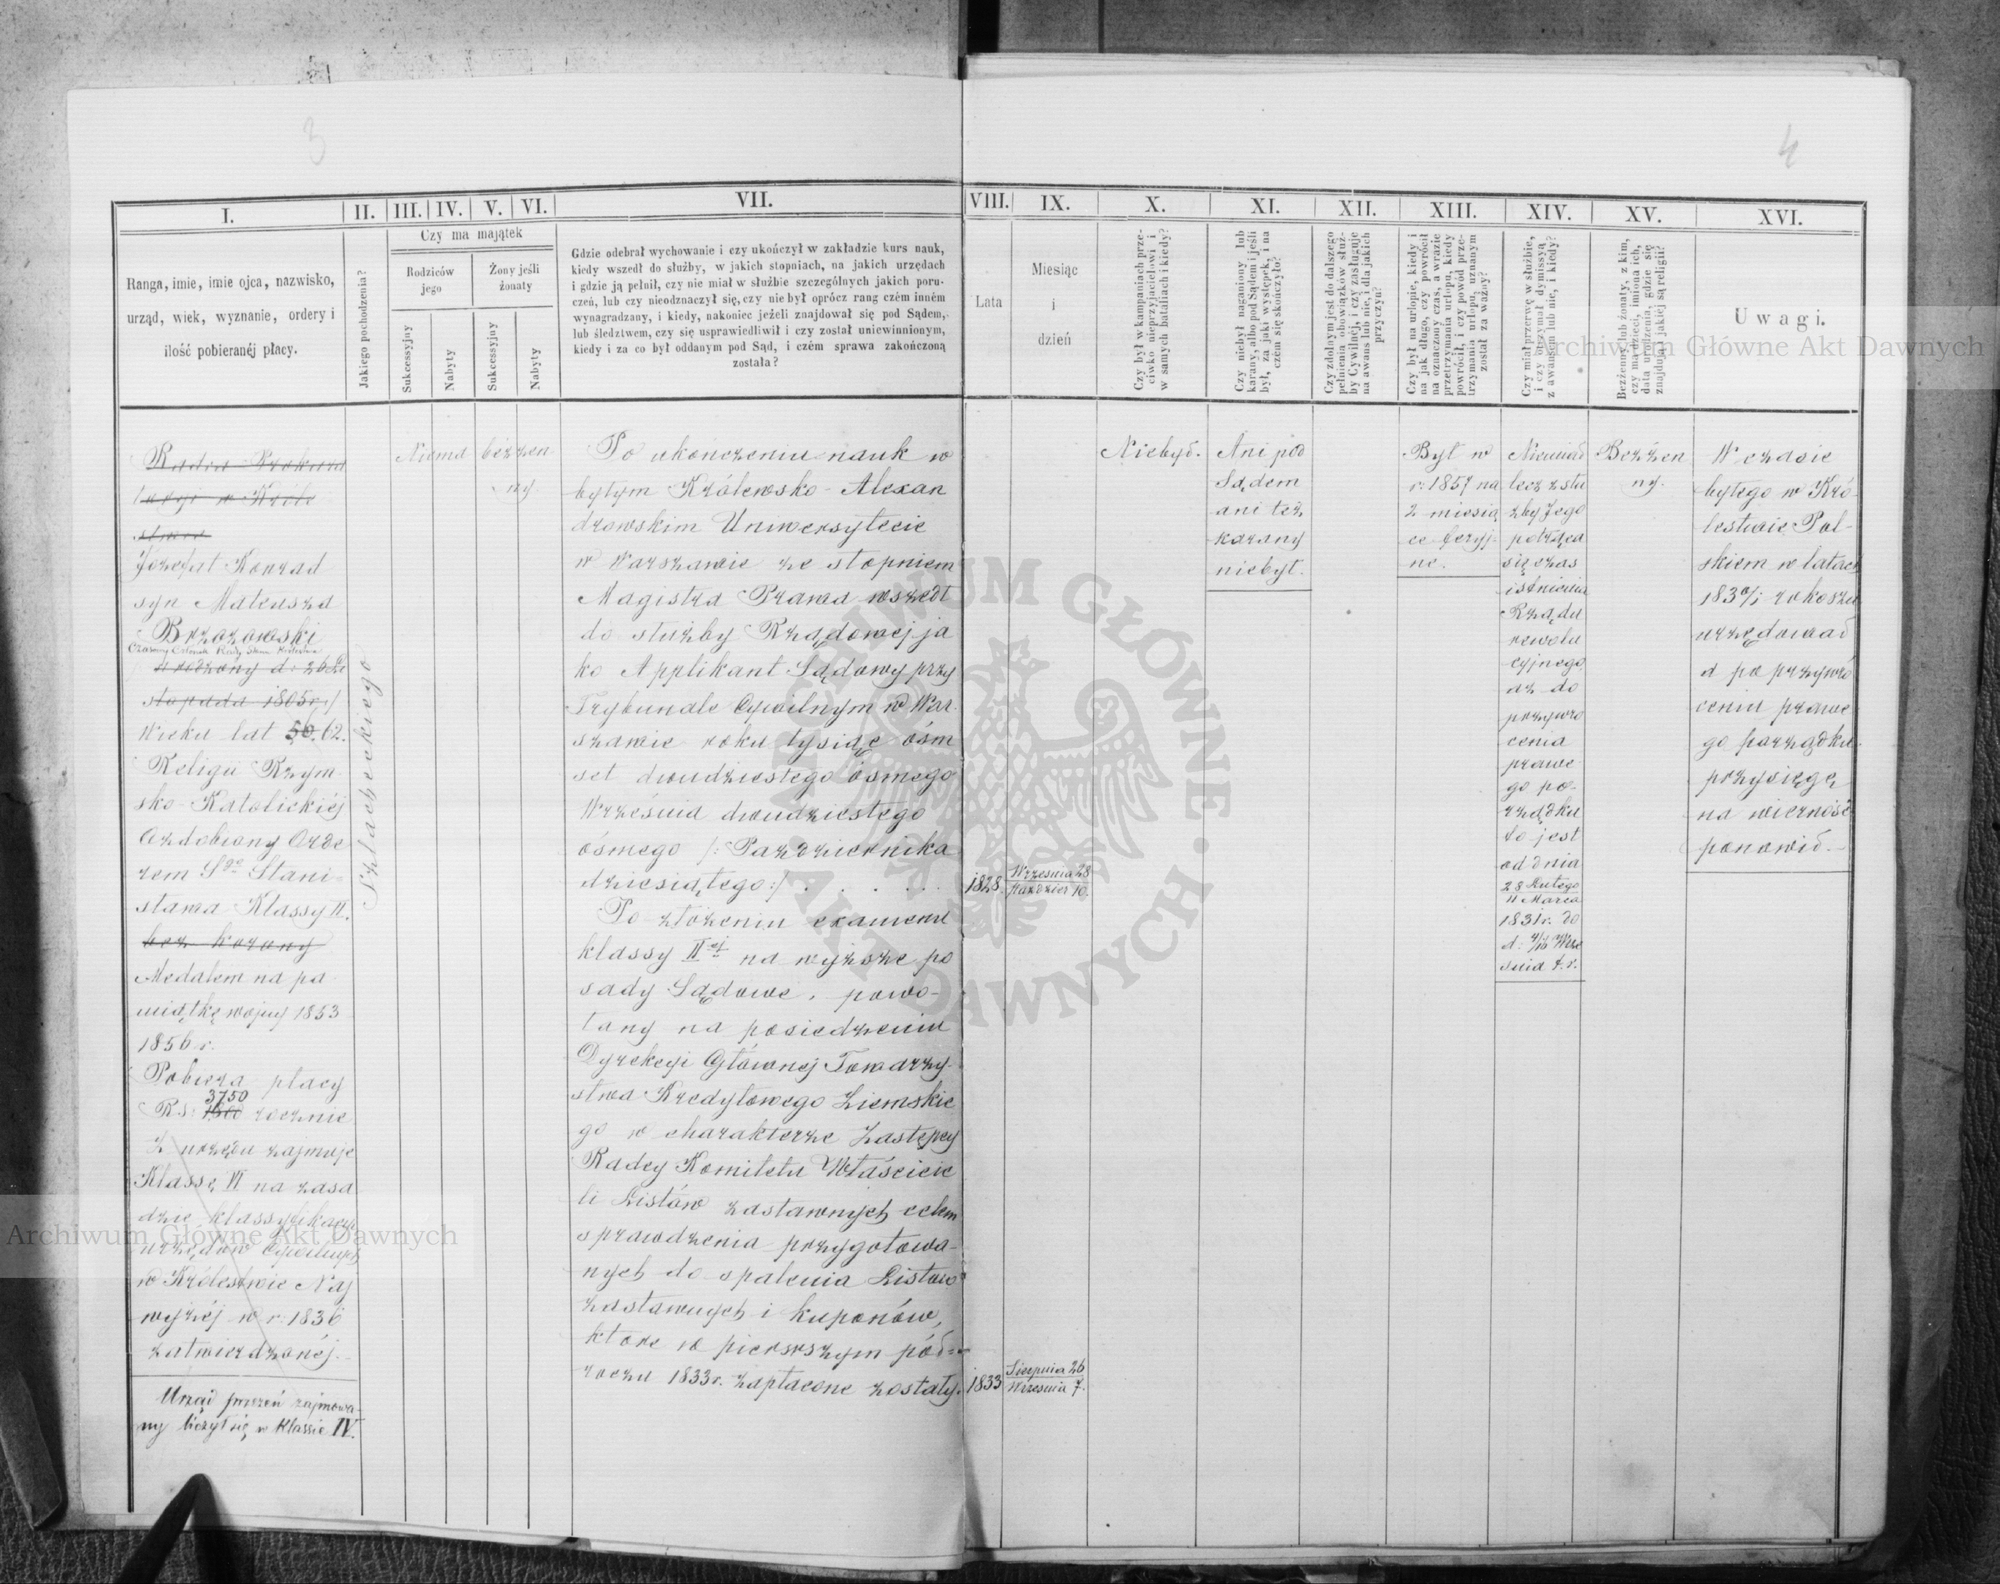 3
4
I.
II.
III.
IV.
V.
VI.
VII.
VIII.
IX.
X.
XI.
XII.
XIII.
XIV.
XV.
XVI.
Ranga, imie, imie ojca, nazwisko,
urząd, wiek, wyznanie, ordery i
ilość pobieranéj płacy.
Jakiego pochodzenia?
Czy ma majątek
Rodziców
jego
Żony jeśli
żonaty
Sukcessyjny
Nabyty
Sukcessyjny
Nabyty
Gdzie odebrał wychowanie i czy ukończył w zakładzie kurs nauk,
kiedy wszedł do służby, w jakich stopniach, na jakich urzędach
i gdzie ją pełnił, czy nie miał w służbie szczególnych jakich poru-
czeń, lub czy nieodznaczył się, czy nie był oprócz rang czém inném
wynagradzany, i kiedy, nakoniec jeżeli znajdował się pod Sądem,
lub śledztwem, czy się usprawiedliwił i czy został uniewinnionym,
kiedy i za co był oddanym pod Sąd, i czém sprawa zakończoną
została?
Lata
Miesiąc
i
dzień
Czy był w kampaniach prze-
ciwko nieprzyjacielowi i
w samych bataliach i kiedy?
Czy niebył naganiony lub
karany, albo pod Sądem i jeśli
był, za jaki występek, i na
czém się skończyło?
Czy zdolnym jest do dalszego
pełnienia obowiązków służ-
by Cywilnéj, i czy zasługuje
na awans lub nie, i dla jakich
przyczyn?
Czy był na urlopie, kiedy i
na jak długo, czy powrócił
na oznaczony czas, a w razie
przetrzymania urlopu, kiedy
powrócił, i czy powód prze-
trzymania urlopu, uznanym
został za ważny?
Czy miał przerwę w służbie,
i czy otrzymał dymissyą
z awansem lub nie, i kiedy?
Bezżenny, lub żonaty, z kim,
czy ma dzieci, imiona ich,
data urodzenia, gdzie się
znajdują i jakiéj są religii?
Uwagi.
Radca Prokura
toryi w Króle
stwie
Józefat Konrad
syn Mateusza
Brzozowski
Czasowy Członek Rady Stanu Królestwa
urodzony d: 26 Li
stopada 1805 r:/
Wieku lat 50. 62.
Religii Rzym-
sko-Katolickiéj
Ozdobiony Orde
rem Sgo Stani-
sława Klassy II.
bez korony
Medalem na pa-
miątkę wojny 1853
1856 r.
Pobiera płacy
3750
RS: 1500 rocznie
Z urzędu zajmuje
Klassę VI na zasa
dzie klassyfikacyi
urzędów Cywilnych
w Królestwie Naj
wyżéj w r: 1836
zatwierdzonéj.
Urząd przezeń zajmowa-
ny liczył się w klassie IV.
Szlacheckiego
Niema
bezżen
ny
Po ukończeniu nauk w
byłym Królewsko-Alexan
drowskim Uniwersytecie
w Warszawie ze stopniem
Magistra Prawa wszedł
do służby Rządowéj ja
ko Applikant Sądowy przy
Trybunale Cywilnym w War-
szawie roku tysiąc ośm
set dwudziestego ósmego
Września dwudziestego
ósmego /: Października
dziesiątego :/ . . . . .
Po złożeniu examenu
klassy IIéj na wyższe po
sady Sądowe, powo-
łany na posiedzeniu
Dyrekcyi Głównej Towarzy-
stwa Kredytowego Ziemskie
go w charakterze Zastępcy
Radcy Komitetu Właścicie
li Listów zastawnych celem
sprawdzenia przygotowa-
nych do spalenia Listów
zastawnych i kuponów,
które w pierwszym pół-
roczu 1833 r. zapłacone zostały.
1828
Września 28
Paździer 10.
1833
Sierpnia 26
Września 7.
Niebył.
Ani pod
Sądem
ani też
karany
niebył.
Był w
r: 1857 na
2 miesią
ce feryj-
ne.
Niemiał
lecz z słu
żby Jego
potrąca
się czas
istnienia
Rządu
rewolu
cyjnego
aż do
przywró
cenia
prawe
go po-
rządku
to jest
od dnia
28 Lutego
11 Marca
1831 r. do
d: 4/16 Wrze
śnia t. r.
Bezżen
ny.
W czasie
byłego w Kró-
lestwie Pol-
skiem w latach
1830/1 rokoszu
urzędował
a po przywró
ceniu prawe
go porządku
przysięgę
na wierność
ponowił.
Archiwum Główne Akt Dawnych
Archiwum Główne Akt Dawnych
ARCHIWUM GŁÓWNE AKT DAWNYCH